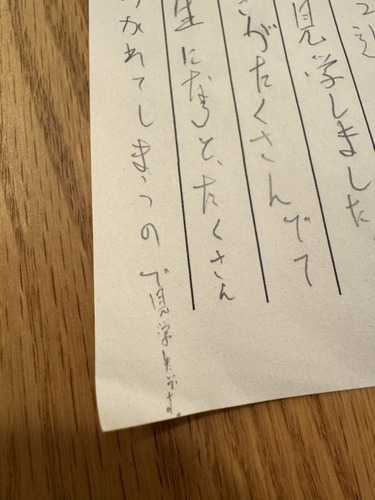 見学しました
がたくさんでて
生になると、たくさん
かれてしまうので見学